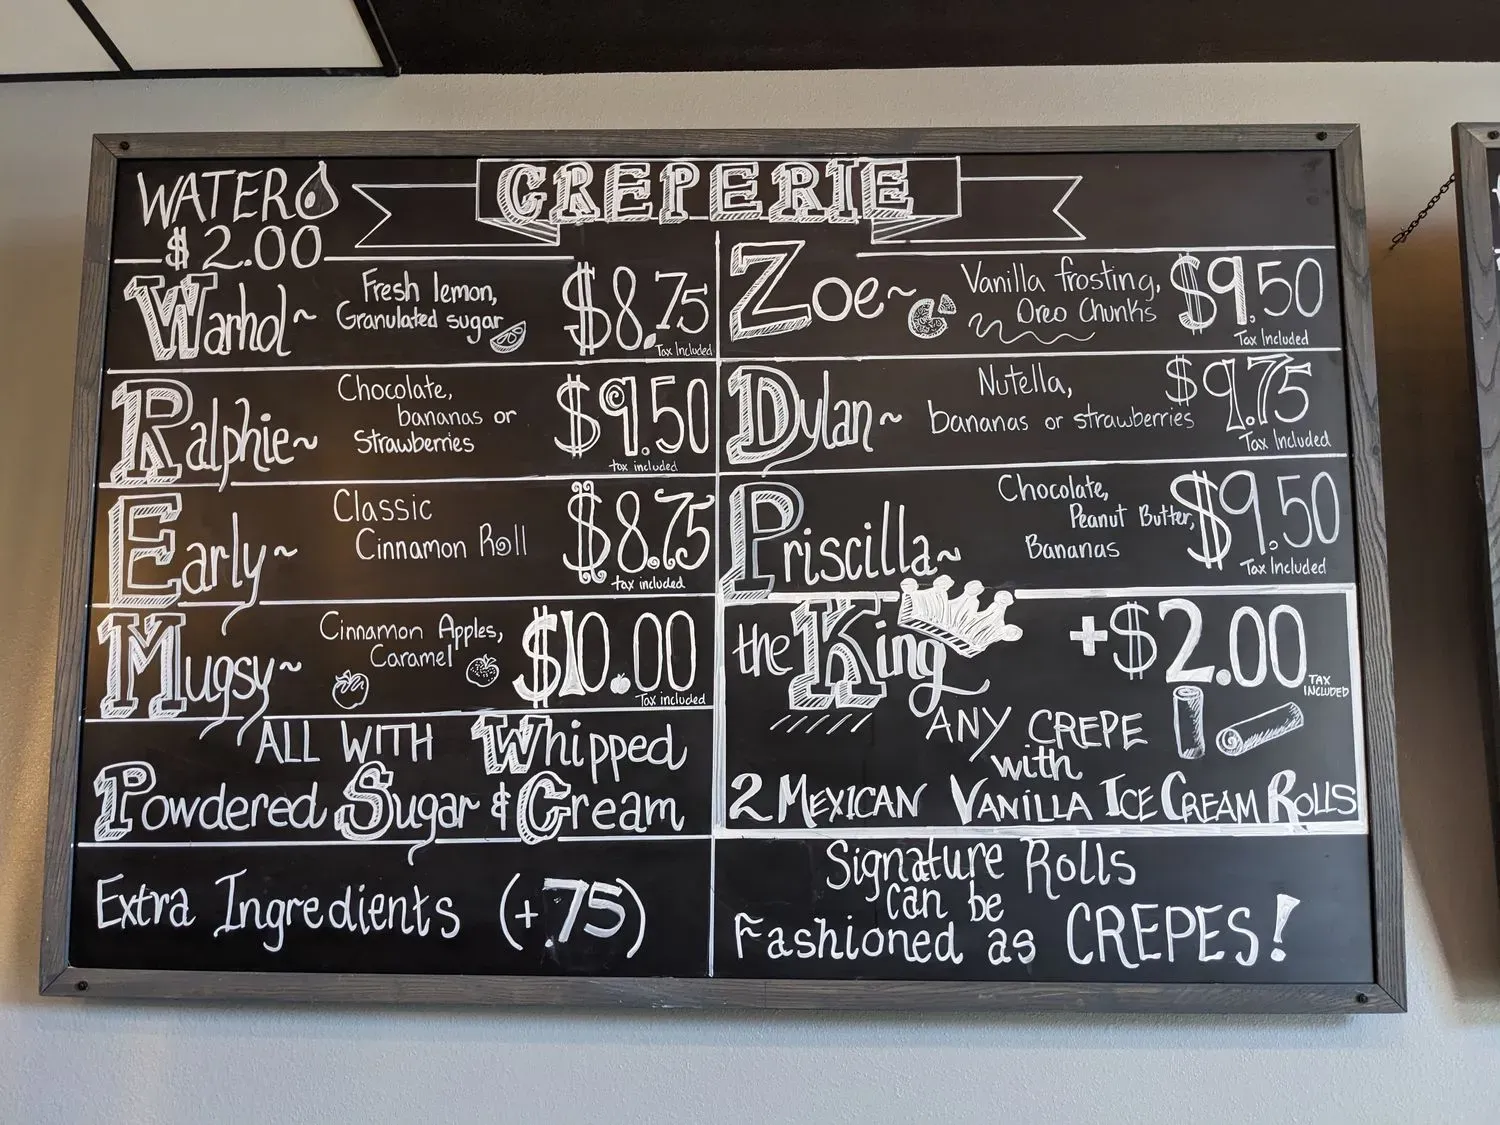 CREPERIE
WATER
$2.00
Warhol~
Fresh lemon,
Granulated sugar
$8.75
Tax Included
Ralphie~
Chocolate,
bananas or
Strawberries
$9.50
tax included
Early~
Classic
Cinnamon Roll
$8.75
tax included
Mugsy~
Cinnamon Apples,
Caramel
$10.00
Tax included
ALL WITH Whipped
Powdered Sugar & Cream
Extra Ingredients (+.75)
Zoe~
Vanilla frosting,
Oreo Chunks
$9.50
Tax Included
Dylan~
Nutella,
bananas or strawberries
$9.75
Tax Included
Priscilla~
Chocolate,
Peanut Butter,
Bananas
$9.50
Tax Included
the King
+$2.00
TAX
INCLUDED
ANY CREPE
with
2 MEXICAN VANILLA ICE CREAM ROLLS
Signature Rolls
can be
Fashioned as CREPES!